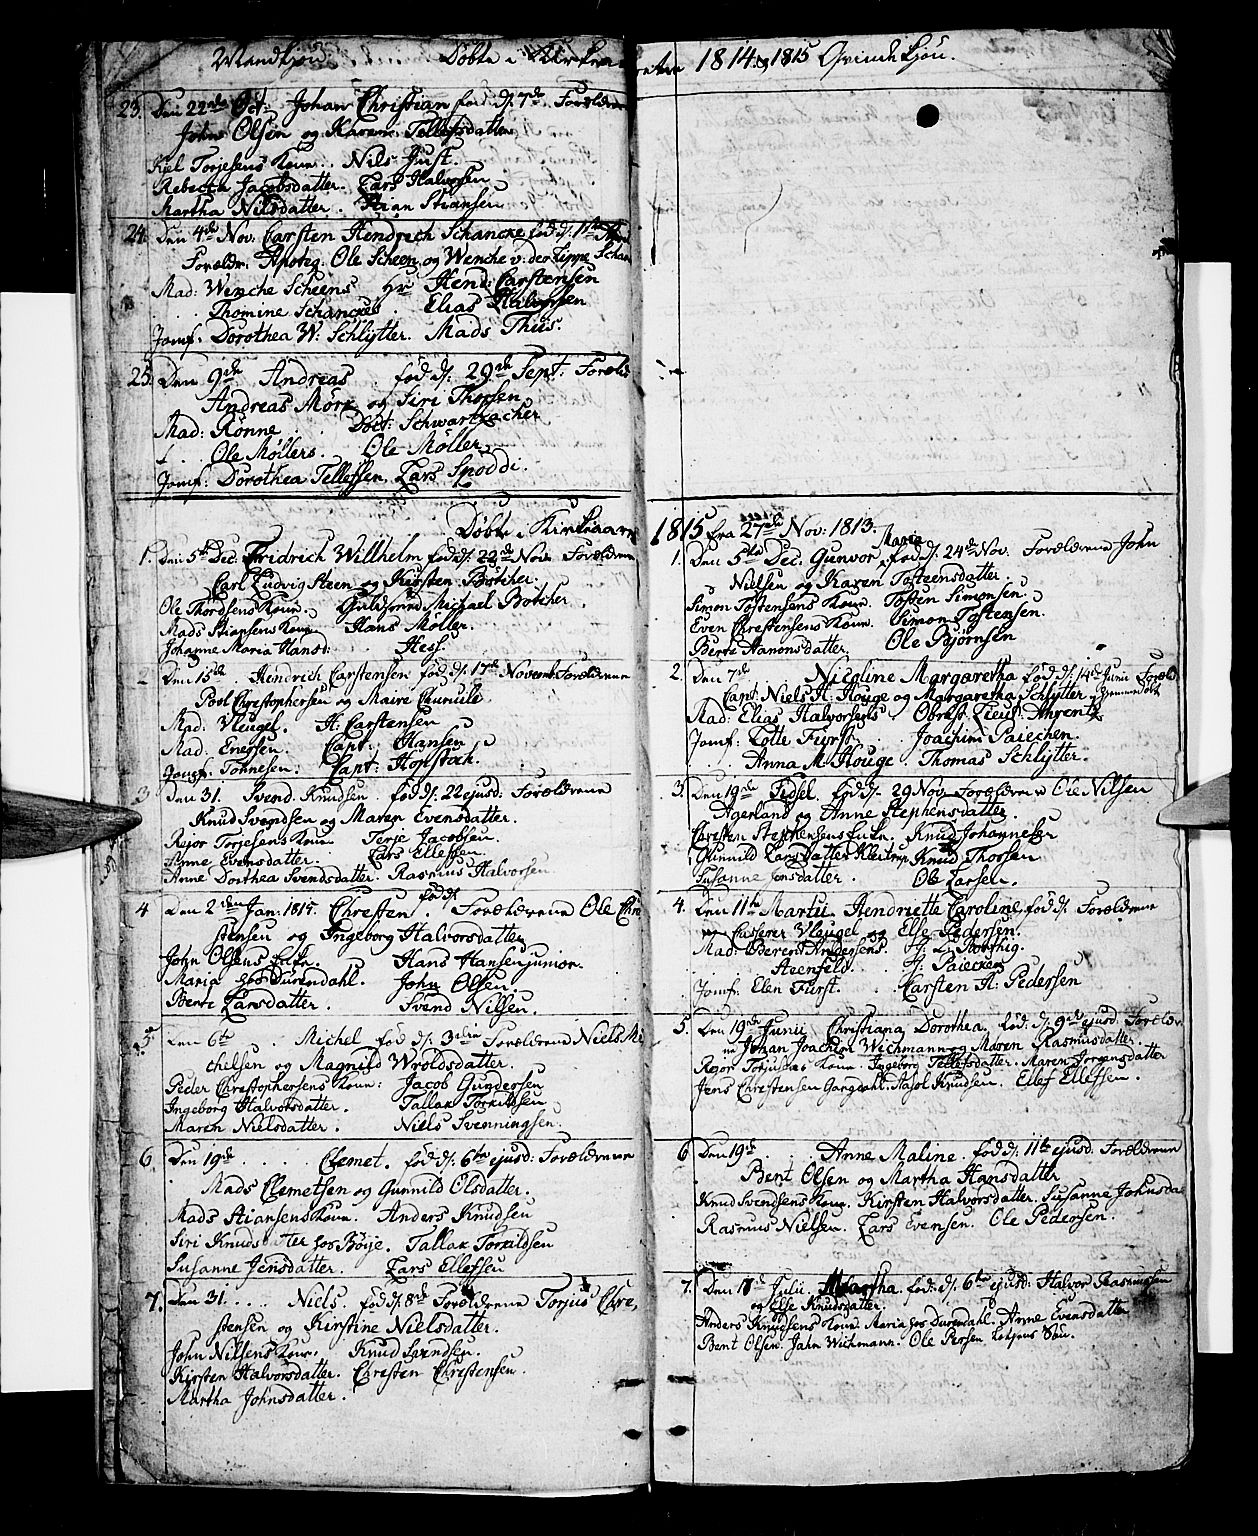 Mandkjøn Døbte i Kirkeaaret
23. Den 22de Oct: Johan Christian fød d: 7de Forældrene
John Olsen og Karen Tellefsdatter
Kiel Torjesens Kone. Nils Just.
Rebecca Jacobsdatter. Lars Halvorsen
Martha Nilsdatter. Stian Stiansen
24. Den 4de Nov: Carsten Hendrich Schancke fød d: 11te
Forældr: Apoteg: Ole Scheen og Wenche v: der Lippe Schan
Mad: Wenche Scheens Hr Hend: Carstensen
Thomine Schanckes. Elias Halvorsen
Jomf: Dorothea W: Schlytter. Mads Thiis.
25. Den 9de Andreas. fød d: 29de Sept: Foræld
Andreas Mörk og Siri Thorsen
Mad: Rønne Doct: Schwartzacher
Ole Møllers. Ole Møller
Jomf: Dorothea Tellefsen. Lars Spoddi.
Døbte i Kirkeaaret
1. Den 5te Dec. Fridrich Willhelm fød d: 22de Nov Forældrene
Carl Ludvig Steen og Kirsten Bötcher.
Ole Thordsens Kone. Guldsmed Michael Bötcher.
Mads Stiansens Kone Hans Möller.
Johanne Maria Hansd: Hess.
2 Den 15de Hendrich Carstensen fød d: 17de Novemb: Forældrene
Povl Chrestophersen og Maire
Mad: Vleugel. H: Carstensen
Mad: Enersen. Capt: Hansen
Jomf: Tønnesen. Capt: Hopstock.
3 Den 31. Svend Knudsen. fød d: 22 ejusd: Forældrene
Knud Svendsen og Maren Evensdatter.
Rejor Torjesens Kone Terje Jacobsen.
Anne Evensdatter. Lars Ellefsen
Anne Dorthea Svendsdatter. Rasmus Halvorsen
4 Den 2den Jan: 1815. Chresten. fød d: Forældrene Ole Chre
stensen og Ingeborg Halvorsdatter
John Olsens Enke. Hans Hansen junior.
Maria hos Durendahl. John Olsen.
Berte Larsdatter. Svend Nilsen.
5 Den 6te. Michel fød d: 3die Forældrene Niels Mi
chelsen og Magnild Wroldsdatter.
Peder Christophersens Kone: Jacob Gundersen
Ingeborg Halvorsdatter. Tallak Torkildsen
Maren Nielsdatter. Niels Svenningsen.
6 Den 19de. Clemet. fød d: 6te ejusd: Forældrene
Mads Clemetsen og Gunnild Olsdatter.
Mads Stiansens Kone. Anders Knudsen
Siri Knudsdatter hos Böije. Tallak Torkildsen
Susanne Jensdatter. Lars Ellefsen
7. Den 31. Niels. fød d: 8de Forældrene Torjus Chre
stensen og Kirstine Nielsdatter.
John Nilsens Kone. Knud Svendsen.
Kirsten Halvorsdatter. Chresten Chrestensen.
Martha Johnsdatter.
1814 og 1815 Qvindekjön.
1815 fra 27de Nov: 1813.
1. Den 5te Dec. Gunvor Maria fød d: 24de Nov. Forældrene John
Nielsen og Karen Tosteensdatter.
Simon Tostensens Kone Tosten Simonsen.
Even Chrestensens Kone. Simon Tostensen.
Berte Aanonsdatter. Ole Björnsen
2. Den 7de Nicoline Margaretha fød d: 14de Junii Foræld
Capt: Niels H: Houge og Margaretha Schlytter.
Mad: Elias Halvorsens Obrest. Lieut: Ahrentz
Jomf: Lotte Fürst. Joachim Paiechen.
Anna M: Houge. Thomas Schlytter.
3. Den 19de Sidsel. fød d: 29 Nov. Forældrene Ole Nilsen
Agerland og Anne Stephensdatter.
Chresten Stephensens Enke. Knud Johannesen
Gunnild Larsdatter Kleutrup Knud Thorsen
Susanne Jensdatter. Ole Larsen.
4. Den 11te Martii Hendriette Caroline fød d: Forældrene
Casserer Vleugel og Else Pedersen.
Mad: Berent Andersens H:
Steenfeld. H: Paiecken
Jomf: Elen Fürst. Carsten A: Pedersen
5. Den 19de Junii Christiana Dorothea. fød d: 9de ejusd: Forældre
ne Johan Joachim Wichmann og Maren Rasmusdatter.
Rejor Torjusens Kone. Ingeborg Tellefsdatter. Maren Jörgensdatter
Jens Chrestensen Aasol Knudsen. Ellef Ellefsen.
6 Den 19de Anne Maline. fød d: 11te ejusd: Forældrene
Bent Olsen og Martha Hansdatter
Knud Svendsens Kone. Kirsten Halvorsdatter. Susanne Johnsda
Rasmus Nielsen. Lars Evensen. Ole Pedersen.
7. Den Julii Martha. fød: d: 6te ejusd: Halvor Rasmussen
og Else Knudsdatter.
Anders Knudsens Kone Maria hos Durendahl. Anne Evensdatter
Bent Olsen. Jahn Wichmann. Ole Persen Lodsens Sön.